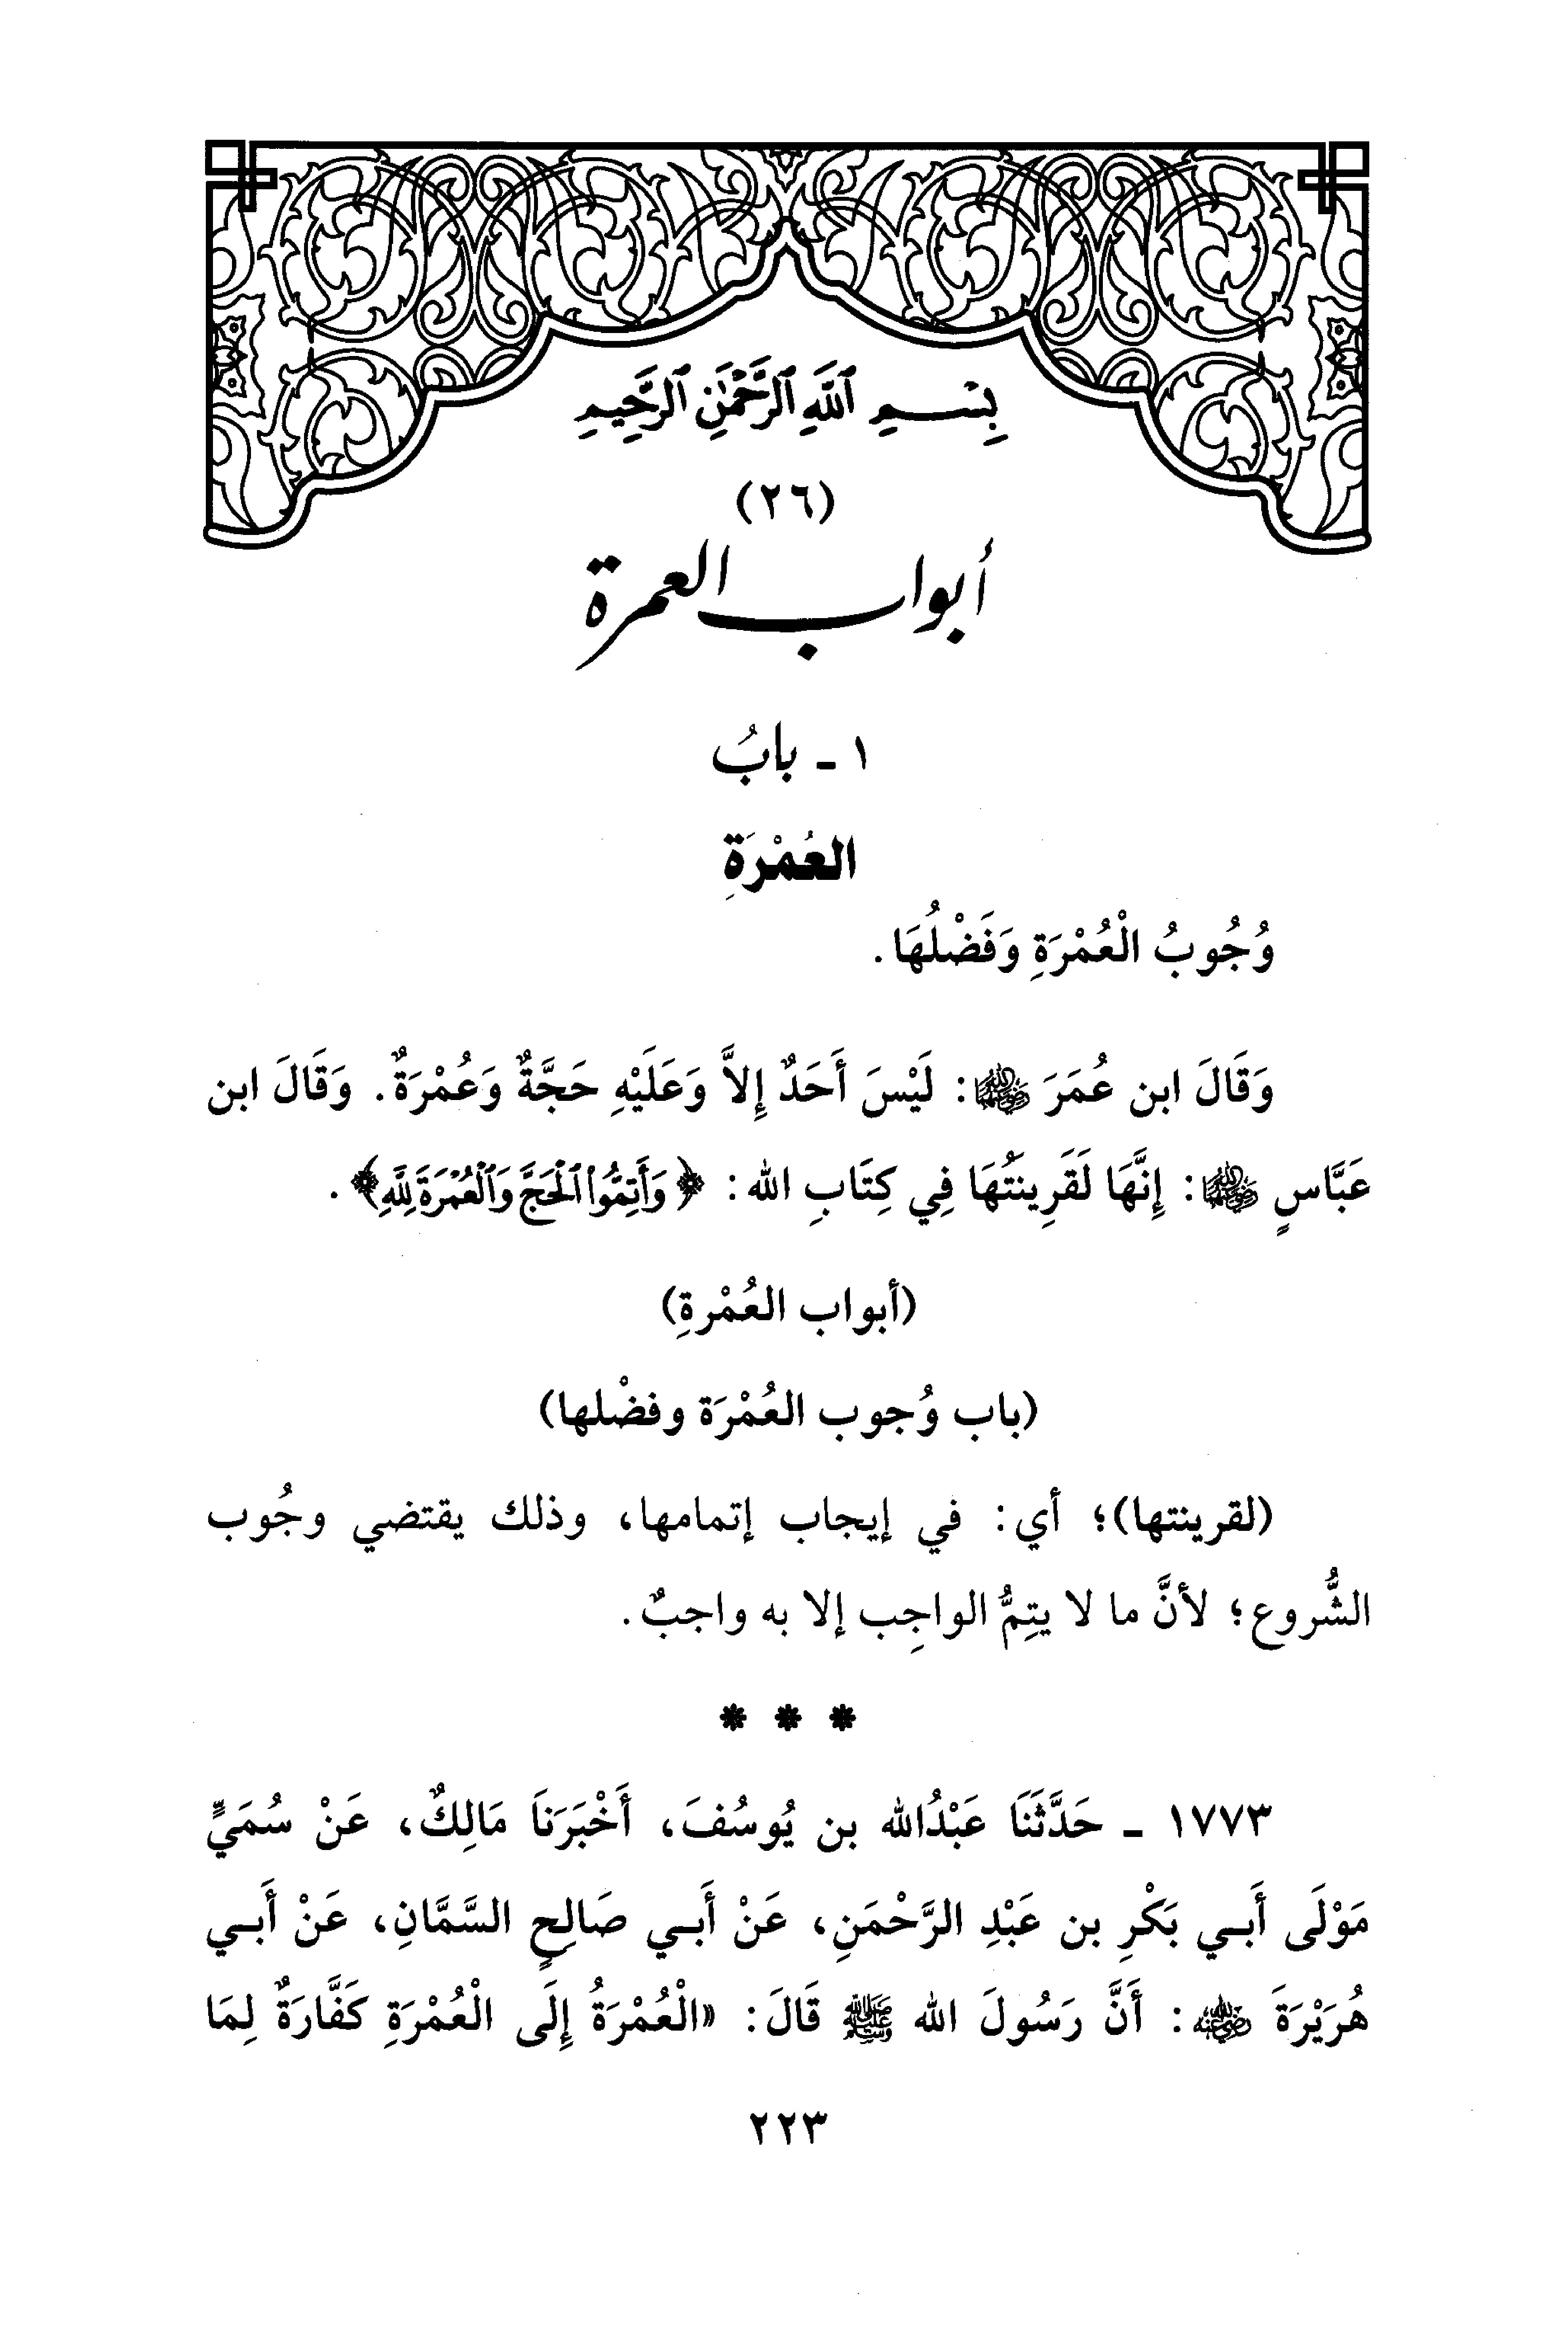 بِسْمِ ٱللَّهِ ٱلرَّحْمَٰنِ ٱلرَّحِيمِ
(٢٦)
أبواب العمرة
١ ـ بابُ
العُمْرَةِ
وُجُوبُ الْعُمْرَةِ وَفَضْلُهَا.
وَقَالَ ابن عُمَرَ رضي الله عنهما: لَيْسَ أَحَدٌ إِلاَّ وَعَلَيْهِ حَجَّةٌ وَعُمْرَةٌ. وَقَالَ ابن
عَبَّاسٍ رضي الله عنهما: إِنَّهَا لَقَرِينَتُهَا فِي كِتَابِ الله: ﴿وَأَتِمُّوا۟ ٱلْحَجَّ وَٱلْعُمْرَةَ لِلَّهِ﴾.
(أبواب العُمْرةِ)
(باب وُجوب العُمْرَة وفضْلها)
(لقرينتها)؛ أي: في إيجاب إتمامها، وذلك يقتضي وجُوب
الشُّروع؛ لأنَّ ما لا يتِمُّ الواجِب إلا به واجبٌ.
* * *
١٧٧٣ ـ حَدَّثَنَا عَبْدُالله بن يُوسُفَ، أَخْبَرَنَا مَالِكٌ، عَنْ سُمَيٍّ
مَوْلَى أَبي بَكْرِ بن عَبْدِ الرَّحْمَنِ، عَنْ أَبي صَالِحٍ السَّمَّانِ، عَنْ أَبي
هُرَيْرَةَ رضي الله عنه: أَنَّ رَسُولَ الله ﷺ قَالَ: «الْعُمْرَةُ إِلَى الْعُمْرَةِ كَفَّارَةٌ لِمَا
٢٢٣